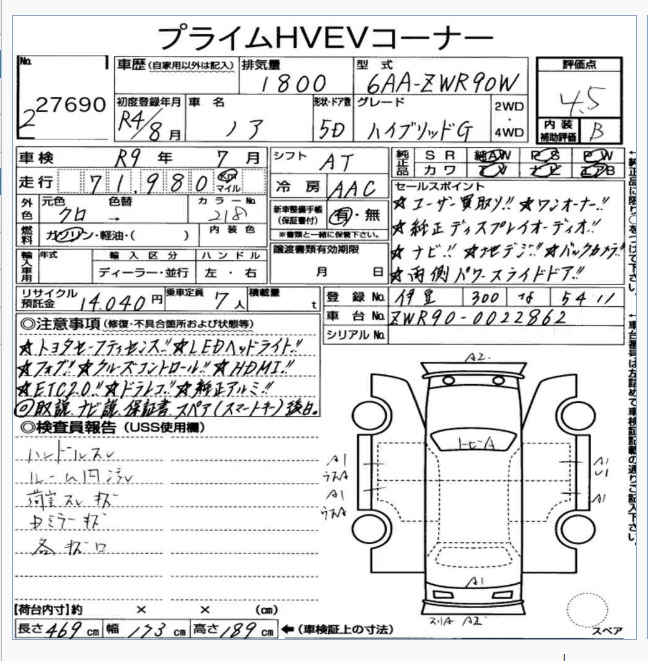 プライムHVEVコーナー
No. 車歴 (自家用以外は記入) 排気量 型式 評価点
227690 1800 6AA-ZWR90W 4.5
初度登録年月 車名 形状・ドア数 グレード 2WD・4WD 内装補助評価
R4/8月 ノア 5D ハイブリッドG B
車検 R9年 7月 シフト AT 純正品 SR 純AW PS PW
走行 71,980 km マイル 冷房 AAC カワ TV ナビ エアB
外色 元色 色替 カラーNo. 新車整備手帳(保証書付) 有・無 セールスポイント
クロ → 218 ※書類と一緒に保管下さい。
燃料 ガソリン・軽油・( ) 内装色 譲渡書類有効期限
輸入車用 年式 輸入区分 ハンドル 月 日
ディーラー・並行 左・右
☆ユーザー買取り!! ☆ワンオーナー!!
☆純正ディスプレイオーディオ!!
☆ナビ!! ☆地デジ!! ☆バックカメラ!!
☆両側パワースライドドア!!
リサイクル預託金 14,040円 乗車定員 7人 積載量 t
登録No. 伊豆 300 5411
車台No. ZWR90-0022862
シリアルNo.
◎注意事項 (修復・不具合箇所および状態等)
☆トヨタセーフティセンス!! ☆LEDヘッドライト!!
☆フォグ!! ☆クルーズコントロール!! ☆HDMI!!
☆ETC2.0!! ☆ドラレコ!! ☆純正アルミ!!
◎取説、ナビ説、保証書、スペア(スマートキー)後日。
◎検査員報告 (USS使用欄)
ハンドルスレ
ルーム内汚レ
荷室スレ キズ
キズ
各キズ
A2
A1
A1
A1
A1
A1
A1
【荷台内寸】約 × × (cm)
長さ469cm 幅173cm 高さ189cm ←(車検証上の寸法)
スペア
←純正品に限り○をつけて下さい。
←車台番号は右詰めで車検証記載の通りご記入下さい。